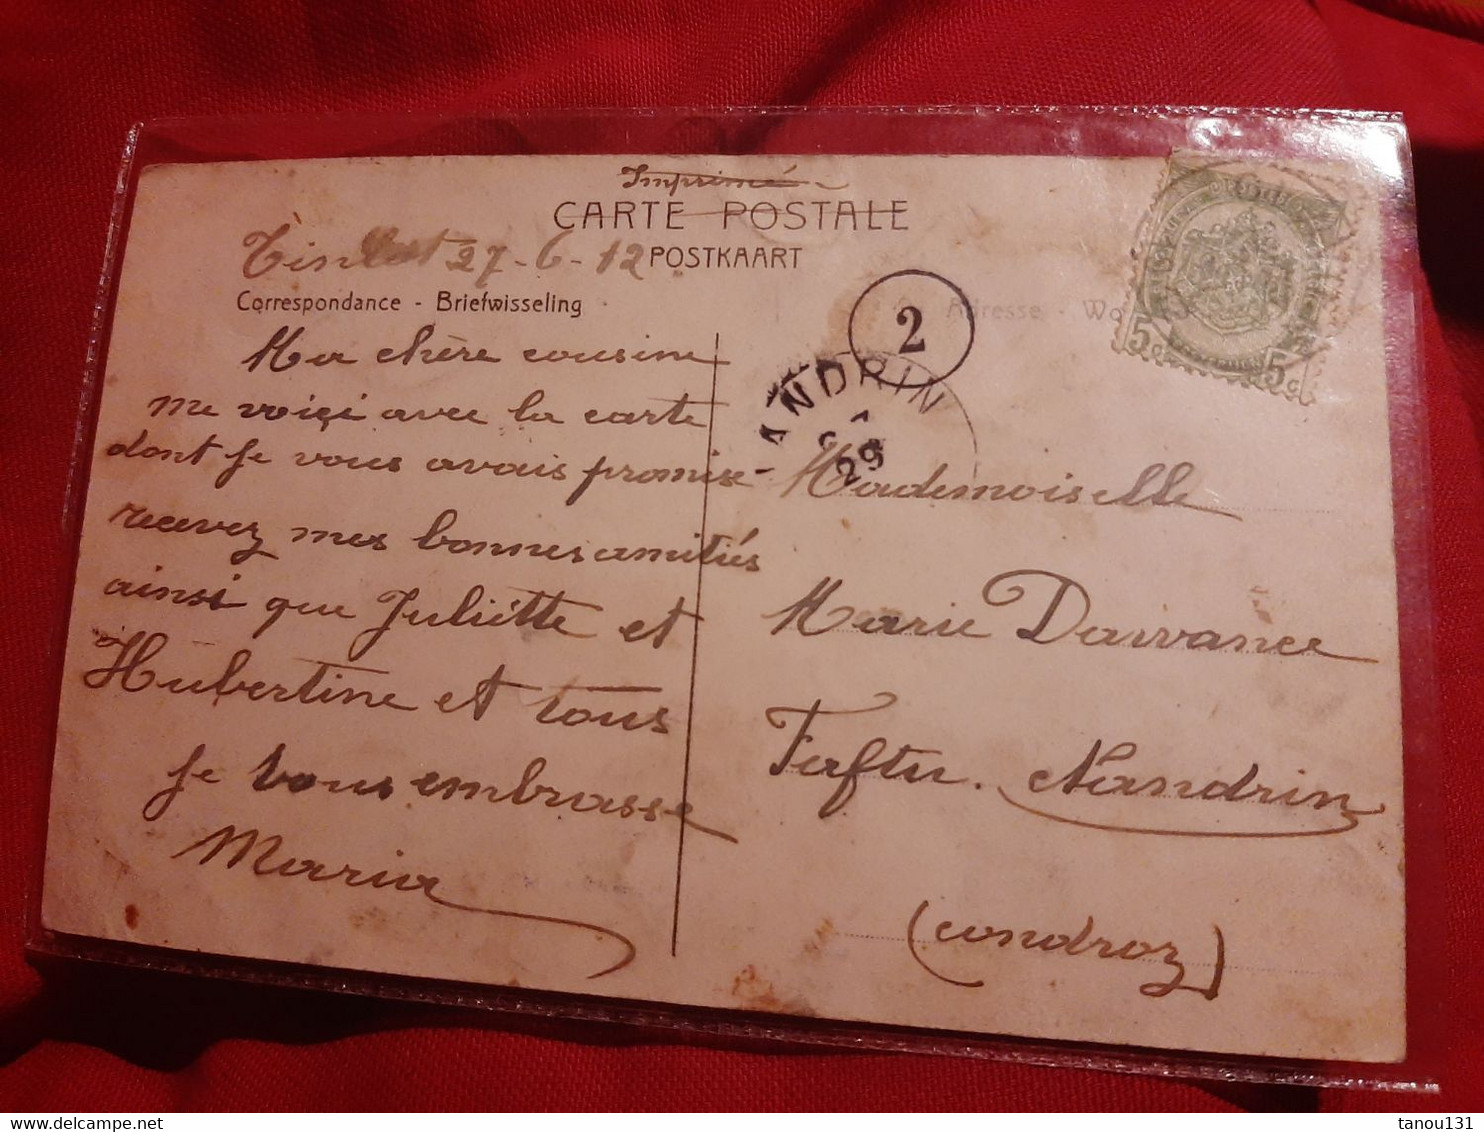 Imprimé
CARTE POSTALE
Tinlot 27-6-12 POSTKAART
Correspondance - Briefwisseling
Adresse -
2
5c 5c
ANDRIN
29
Ma chère cousine
me voiçi avec la carte
dont je vous avais promise
recevez mes bonnes amitiés
ainsi que Juliette et
Hubertine et tous
je vous embrasse
Maria
Mademoiselle
Marie Dawance
Nandrin
(condroz)
tanou131